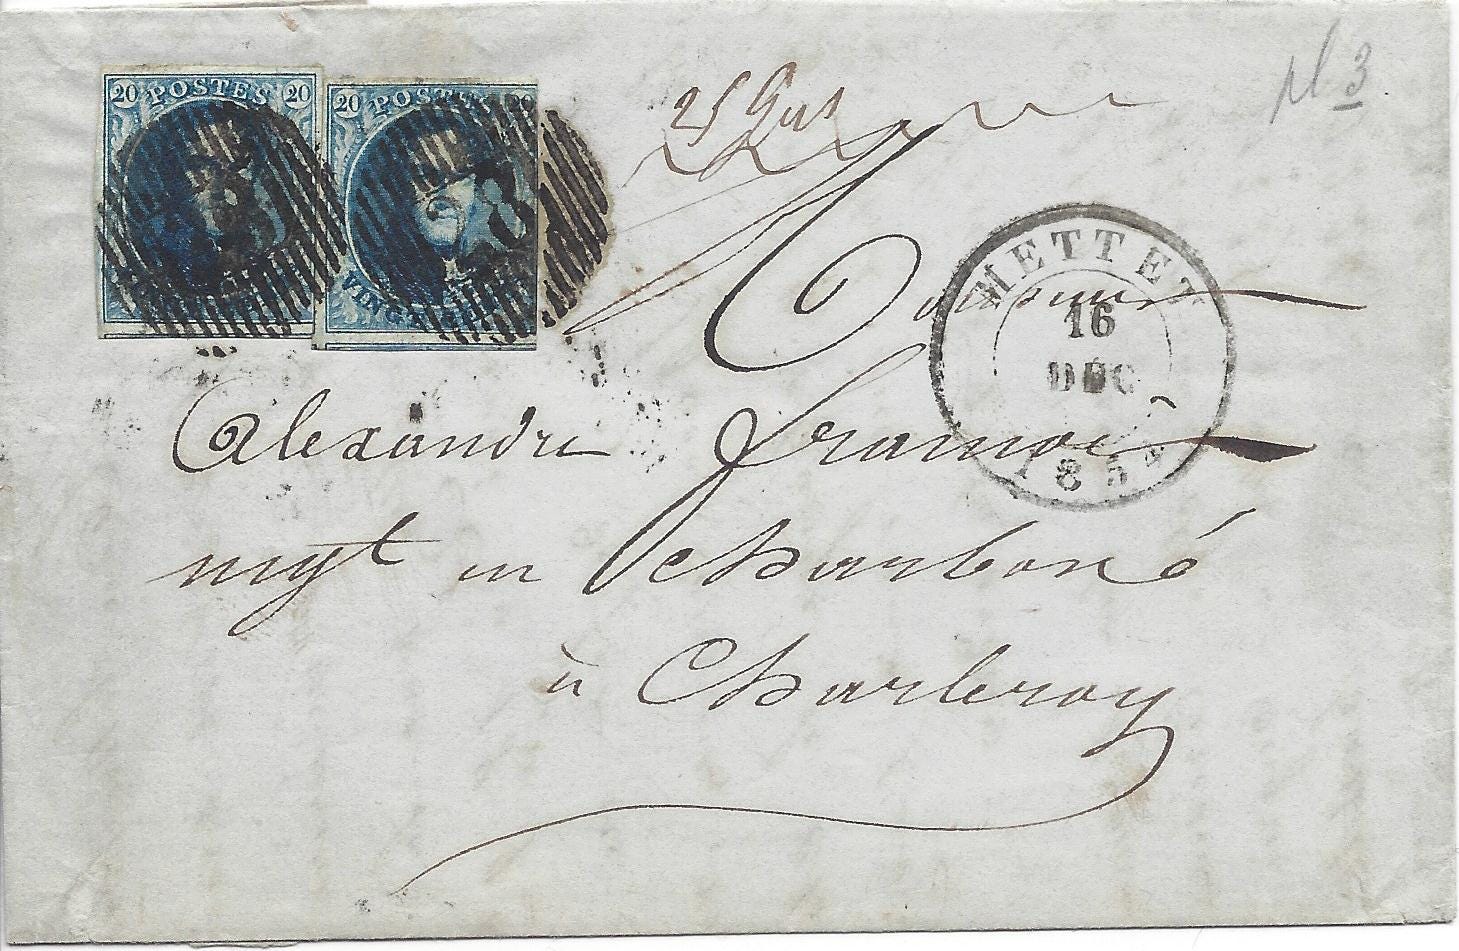 20 POSTES 20
20 POSTES 20
VINGT
pl 3
METTET
16
DEC
1854
Monsieur
Alexandre
ngt en Charbon
à Charleroy